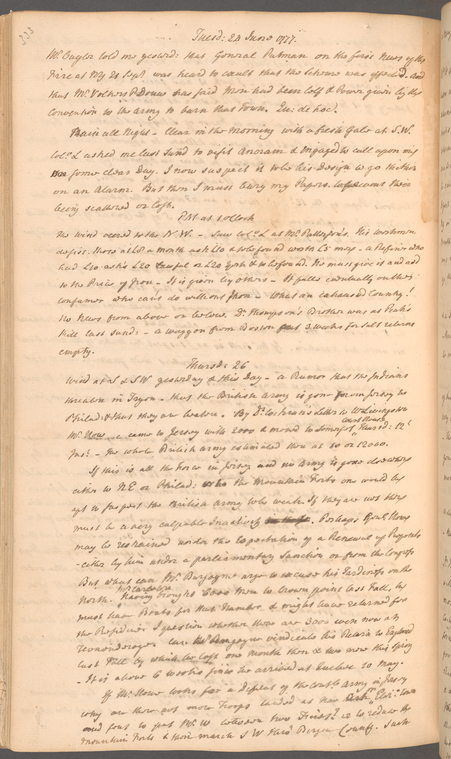 333
Tuesd: 24 June 1777.
Mr. Cuyler told me yesterd: that General Putnam on the first News of the
Fire at NY 21 Sept was heard to exult that the Scheme was effected. And
that Mr. had said Men had been left & Power given by the
Convention to the Army to burn that Town. Quæ de hoc.
Rain all Night – Clear in the Morning with a fresh Gale at S.W.
Col: L asked me last Sund to visit & Engaged to call upon my
some clear Day. I now suspect it to be his Design to go thither
on an Alarm. But then I must bury my Papers to prevent their
being scattered or lost.
P.M at 1 oClock
The Wind veered to the N.W. – Saw Col: L at Mr. Patterson's. His workmen
desert. Those at £8 a month ask £20 & to be found worth £5 more – a Refiner who
had £10 asks £20 Lawful or £20 York & to be found. He must give it and add
to the Price of Iron – It is given by others – It falls eventually on the
consumer who can't do without Iron – What an exhausted Country!
No News from above or below. Dr. Thompson's Brother was at Peeks
Kill last Sund: – a Waggon from Boston 3 Weeks for Salt returns
empty.
Thursd: 26
Wind at S & SW yesterday & this Day – a Rumor that the Indians
threaten in Tryon – that the British Army is gone from Jersey to
Philad: & that they are below. By Dr. Cochran's Letter to W. Livingston
Mr. Howe came to Jersey with 2000 & moved to Somerset Court House Thursd: 12th
Inst – The whole British Army estimated then at 10 or 12000.
If this is all the force in Jersey and no Army is gone elsewhere
either to N.E or Philad: the Mountain Forts one would be
apt to suspect the British Army too weak. If they are not there
must be a very culpable Inactivity. Perhaps Genl. Howe
may be restrained under the Expectation of a Renewal of Proposals
– either by him under a parliamentary Sanction or from the Congress
But what can Mr. Burgoyne urge to excuse his Tardiness on the
North. Mr. Carleton Having brought 6000 Men to Crown point last Fall, he
must have Boats for that Number & might have returned for
the Residue. I question whether there are 3000 even now at
Ticonderoga. Can Burgoyne vindicate his Return to England
last Fall by which he lost one month then & two more this Spring
– It is above 6 weeks since he arrived at Quebec 10 May.
If Mr. Howe waits for a defeat of the Contl. Army in Jersey
why are there not more Troops landed at New Ark, Eliz: Town
and some to put Mr. W between two Fires? or to reduce the
Mountain Forts & then march S W thro' Bergen County. Such